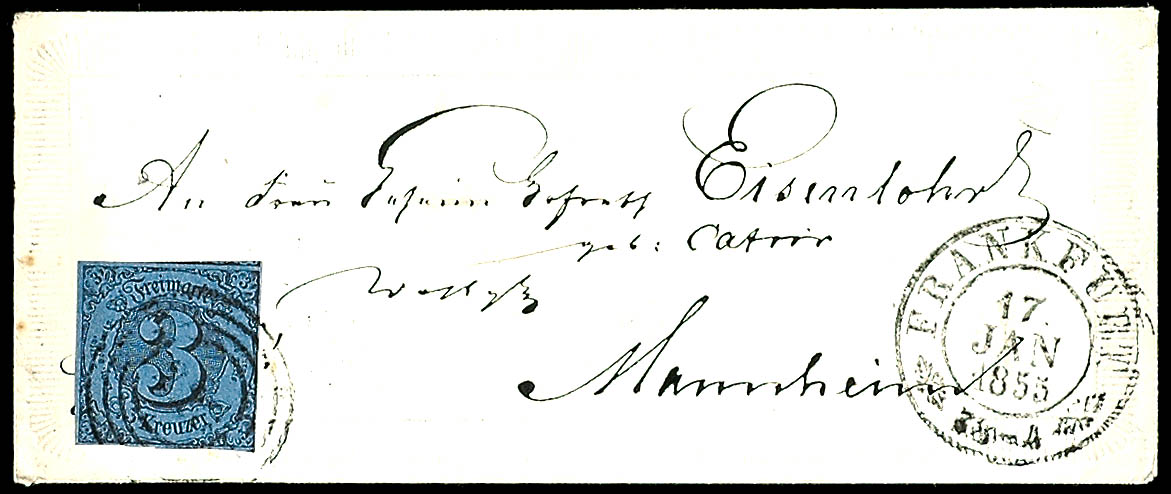 An Frau Geheim Hofrath Eisenlohr
geb: Cator
Mannheim
Freimarke
3
Kreuzer
FRANKFURT
17.
JAN
1853
3 - 4